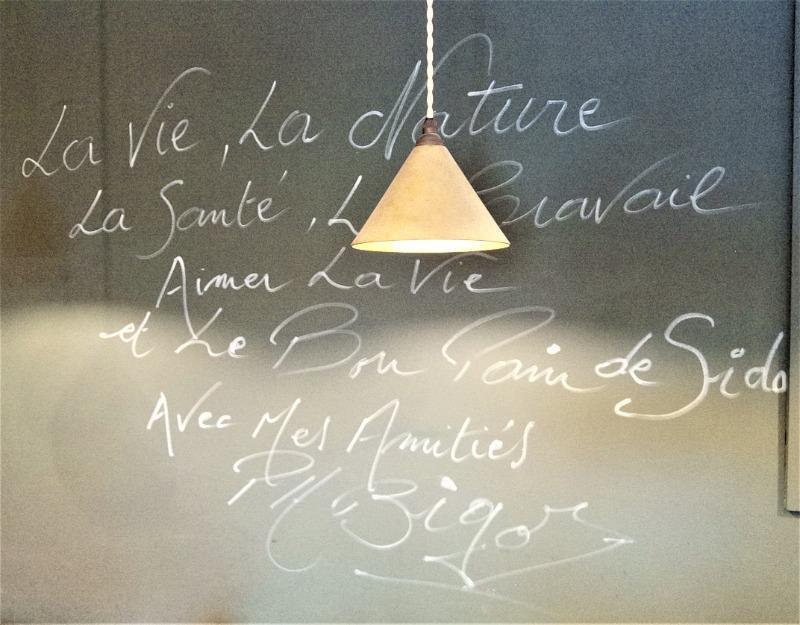 La Vie, La Nature
La Santé, L Travail
Aimer La Vie
et Le Bon Pain de Sido
Avec Mes Amitiés
Bigot